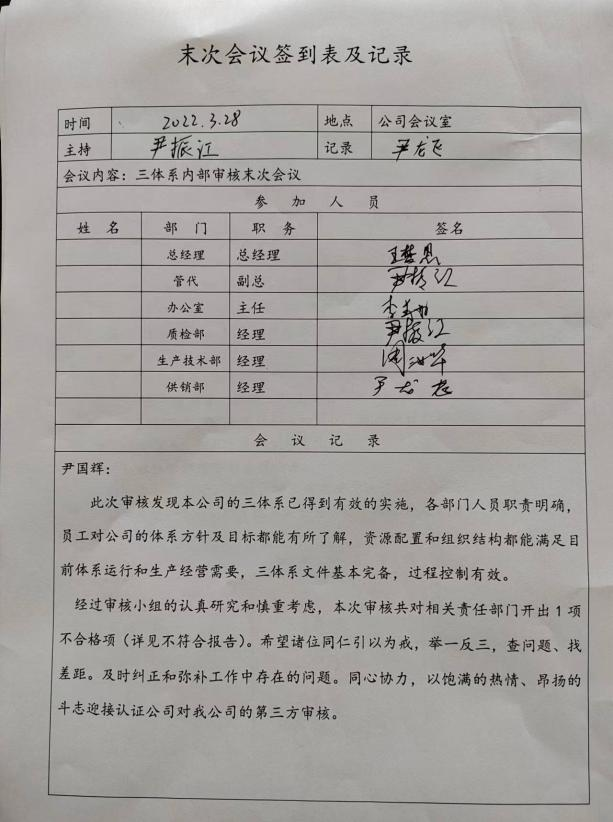 末次会议签到表及记录
时间 2022.3.28 地点 公司会议室
主持 尹振江 记录 尹龙飞
会议内容：三体系内部审核末次会议
参 加 人 员
姓 名 部 门 职 务 签名
总经理 总经理
管代 副总 尹振江
办公室 主任
质检部 经理 尹振江
生产技术部 经理
供销部 经理
会 议 记 录
尹国辉：
此次审核发现本公司的三体系已得到有效的实施，各部门人员职责明确，
员工对公司的体系方针及目标都能有所了解，资源配置和组织结构都能满足目
前体系运行和生产经营需要，三体系文件基本完备，过程控制有效。
经过审核小组的认真研究和慎重考虑，本次审核共对相关责任部门开出 1 项
不合格项（详见不符合报告）。希望诸位同仁引以为戒，举一反三，查问题、找
差距。及时纠正和弥补工作中存在的问题。同心协力，以饱满的热情、昂扬的
斗志迎接认证公司对我公司的第三方审核。